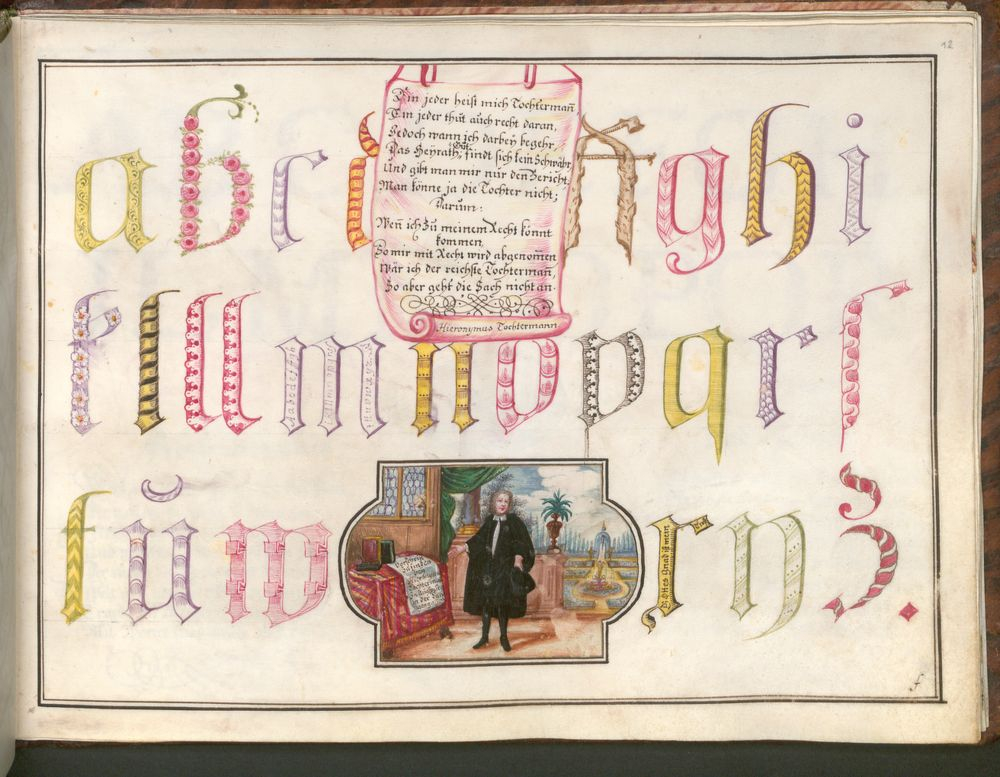 12
a b c d
Ein jeder heist mich Tochtermañ,
Ein jeder thut auch recht daran,
Jedoch wann ich darbeÿ begehr,
Das Heÿrath Gut, findt sich kein Schwähr,
Und gibt man mir nur den Bericht:
Man könne ja die Tochter nicht;
Darum:
Weñ ich Zu meinem Recht könnt
kommen,
So mir mit Recht wird abgenomen
Wär ich der reichste Tochtermañ,
So aber geht die Sach nicht an.
Hieronymus Tochtermann
g h i
k l ll m n o p q r ſ
t ŭ w
x ÿ z.
Gottes Gnad ist mein